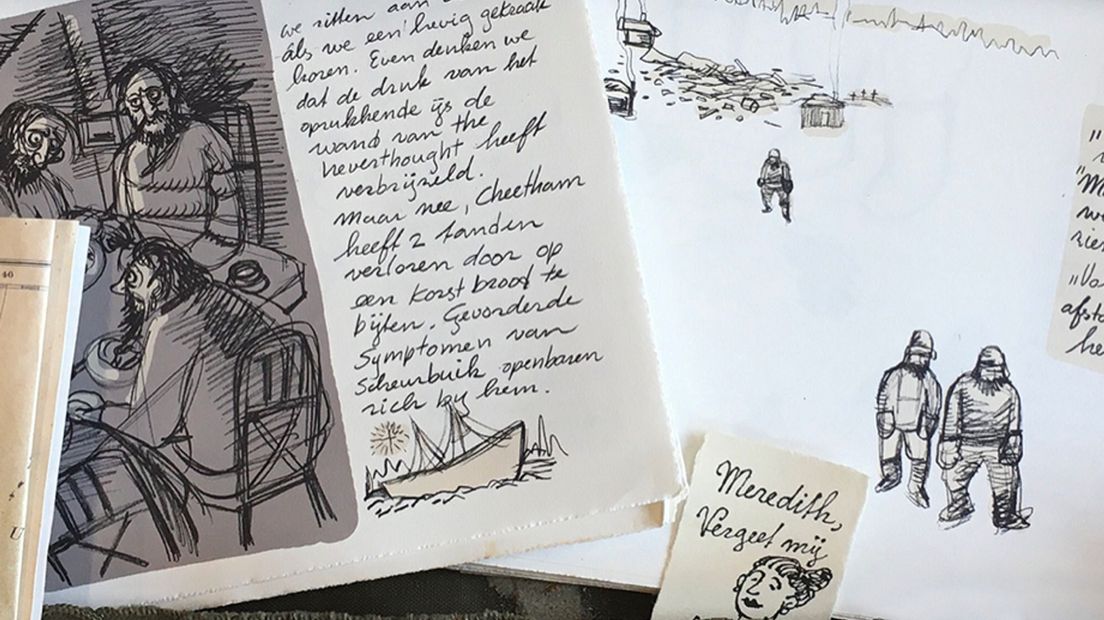 we zitten aan
áls we een hevig gekraak
horen. Even denken we
dat de druk van het
oprukkende ijs de
wand van the
Neverthought heeft
verbrijzeld.
Maar nee, Cheetham
heeft 2 tanden
verloren door op
een korst brood te
bijten. Gevorderde
symptomen van
Scheurbuik openbaren
zich bij hem.
Meredith,
Vergeet mij
"
"M
we
zie
"Vo
afsto
he
46
U